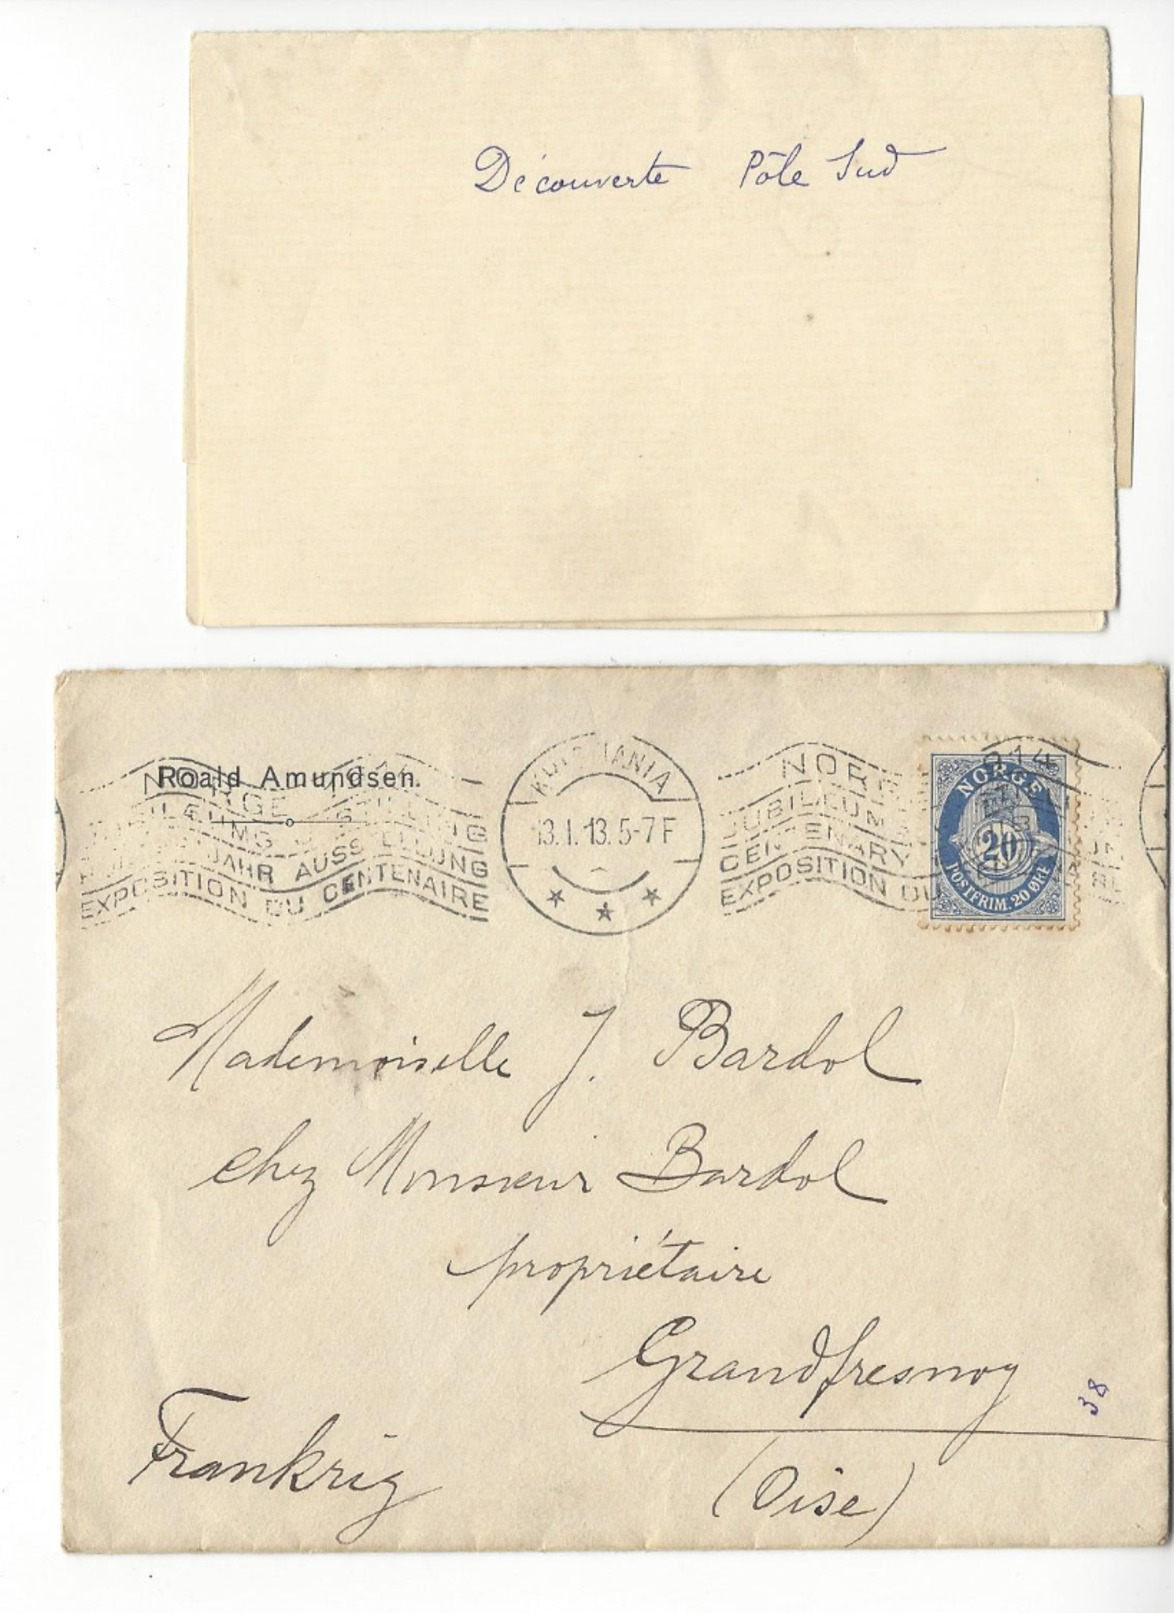 Découverte Pôle Sud
Roald Amundsen.
NORGE
JUBILÆUMS
JAHR AUSSTELLUNG
EXPOSITION DU CENTENAIRE
KRISTIANIA
13.I.13.5-7F
NORGE 1914
JUBILÆUMS
CENTENARY
EXPOSITION DU
NORGE
20
POSTFRIM. 20 ØRE
Mademoiselle J. Bardol
chez Monsieur Bardol
propriétaire
Grandfresnoy
38
Frankrig
(Oise)